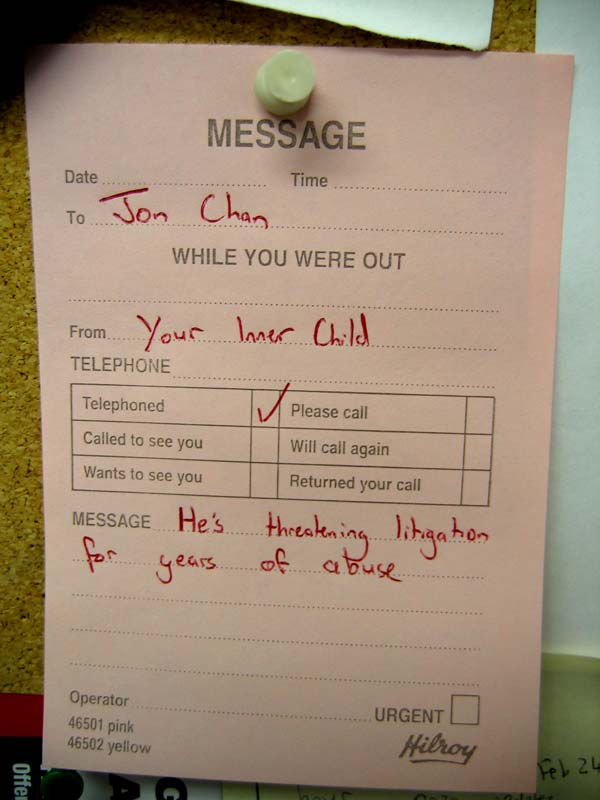 MESSAGE
Date Time
To Jon Chan
WHILE YOU WERE OUT
From Your Inner Child
TELEPHONE
Telephoned ✓ Please call
Called to see you Will call again
Wants to see you Returned your call
MESSAGE He's threatening litigation
for years of abuse
Operator
URGENT
46501 pink
46502 yellow
Hilroy
Offer
Feb 24